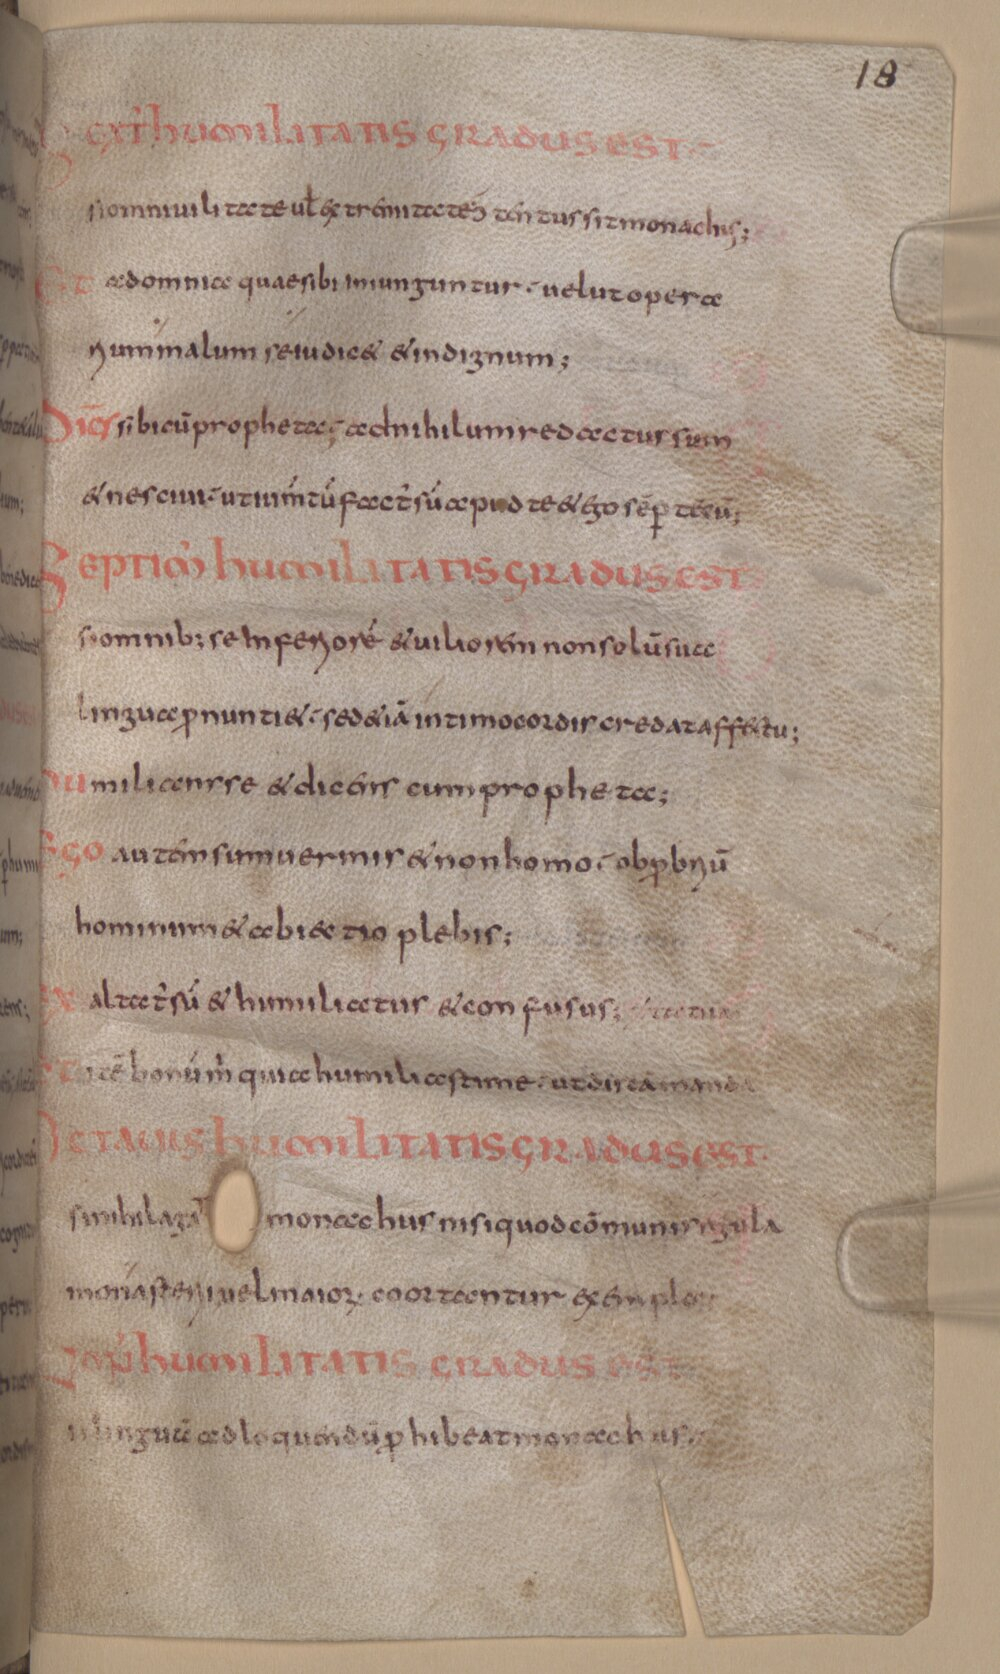 18
Sext' humilitatis gradus est.
si omni uilitate ul' extremitate c̄tentus sit monachus;
Et ad omnia quae sibi iniunguntur. uelut opera
rium malum se iudicet & indignum;
Dicēs sibi cū propheta. ad nihilum redactus sum
& nesciui. ut iumtū fact' sū apud te & ego sēp tecū;
Septim' humilitatis gradus est
si omnib; se inferiore & uiliorem non solū sua
lingua ꝓnuntiet. sed &iā intimo cordis credat affectu;
Humilians se & dicens cum propheta;
Ego autem sum uermis & non homo. obprobriū
hominum & abiectio plebis;
Exaltat' sū & humiliatus & confusus;
Et itē bonum m' quia humiliasti me. ut discā manda
Octauus humilitatis gradus est.
si nihil agat monachus nisi quod cōmunis regula
monasterii uel maior. coortantur exempla;
humilitatis gradus est
si linguā ad loquendū ꝓhibeat monachus.